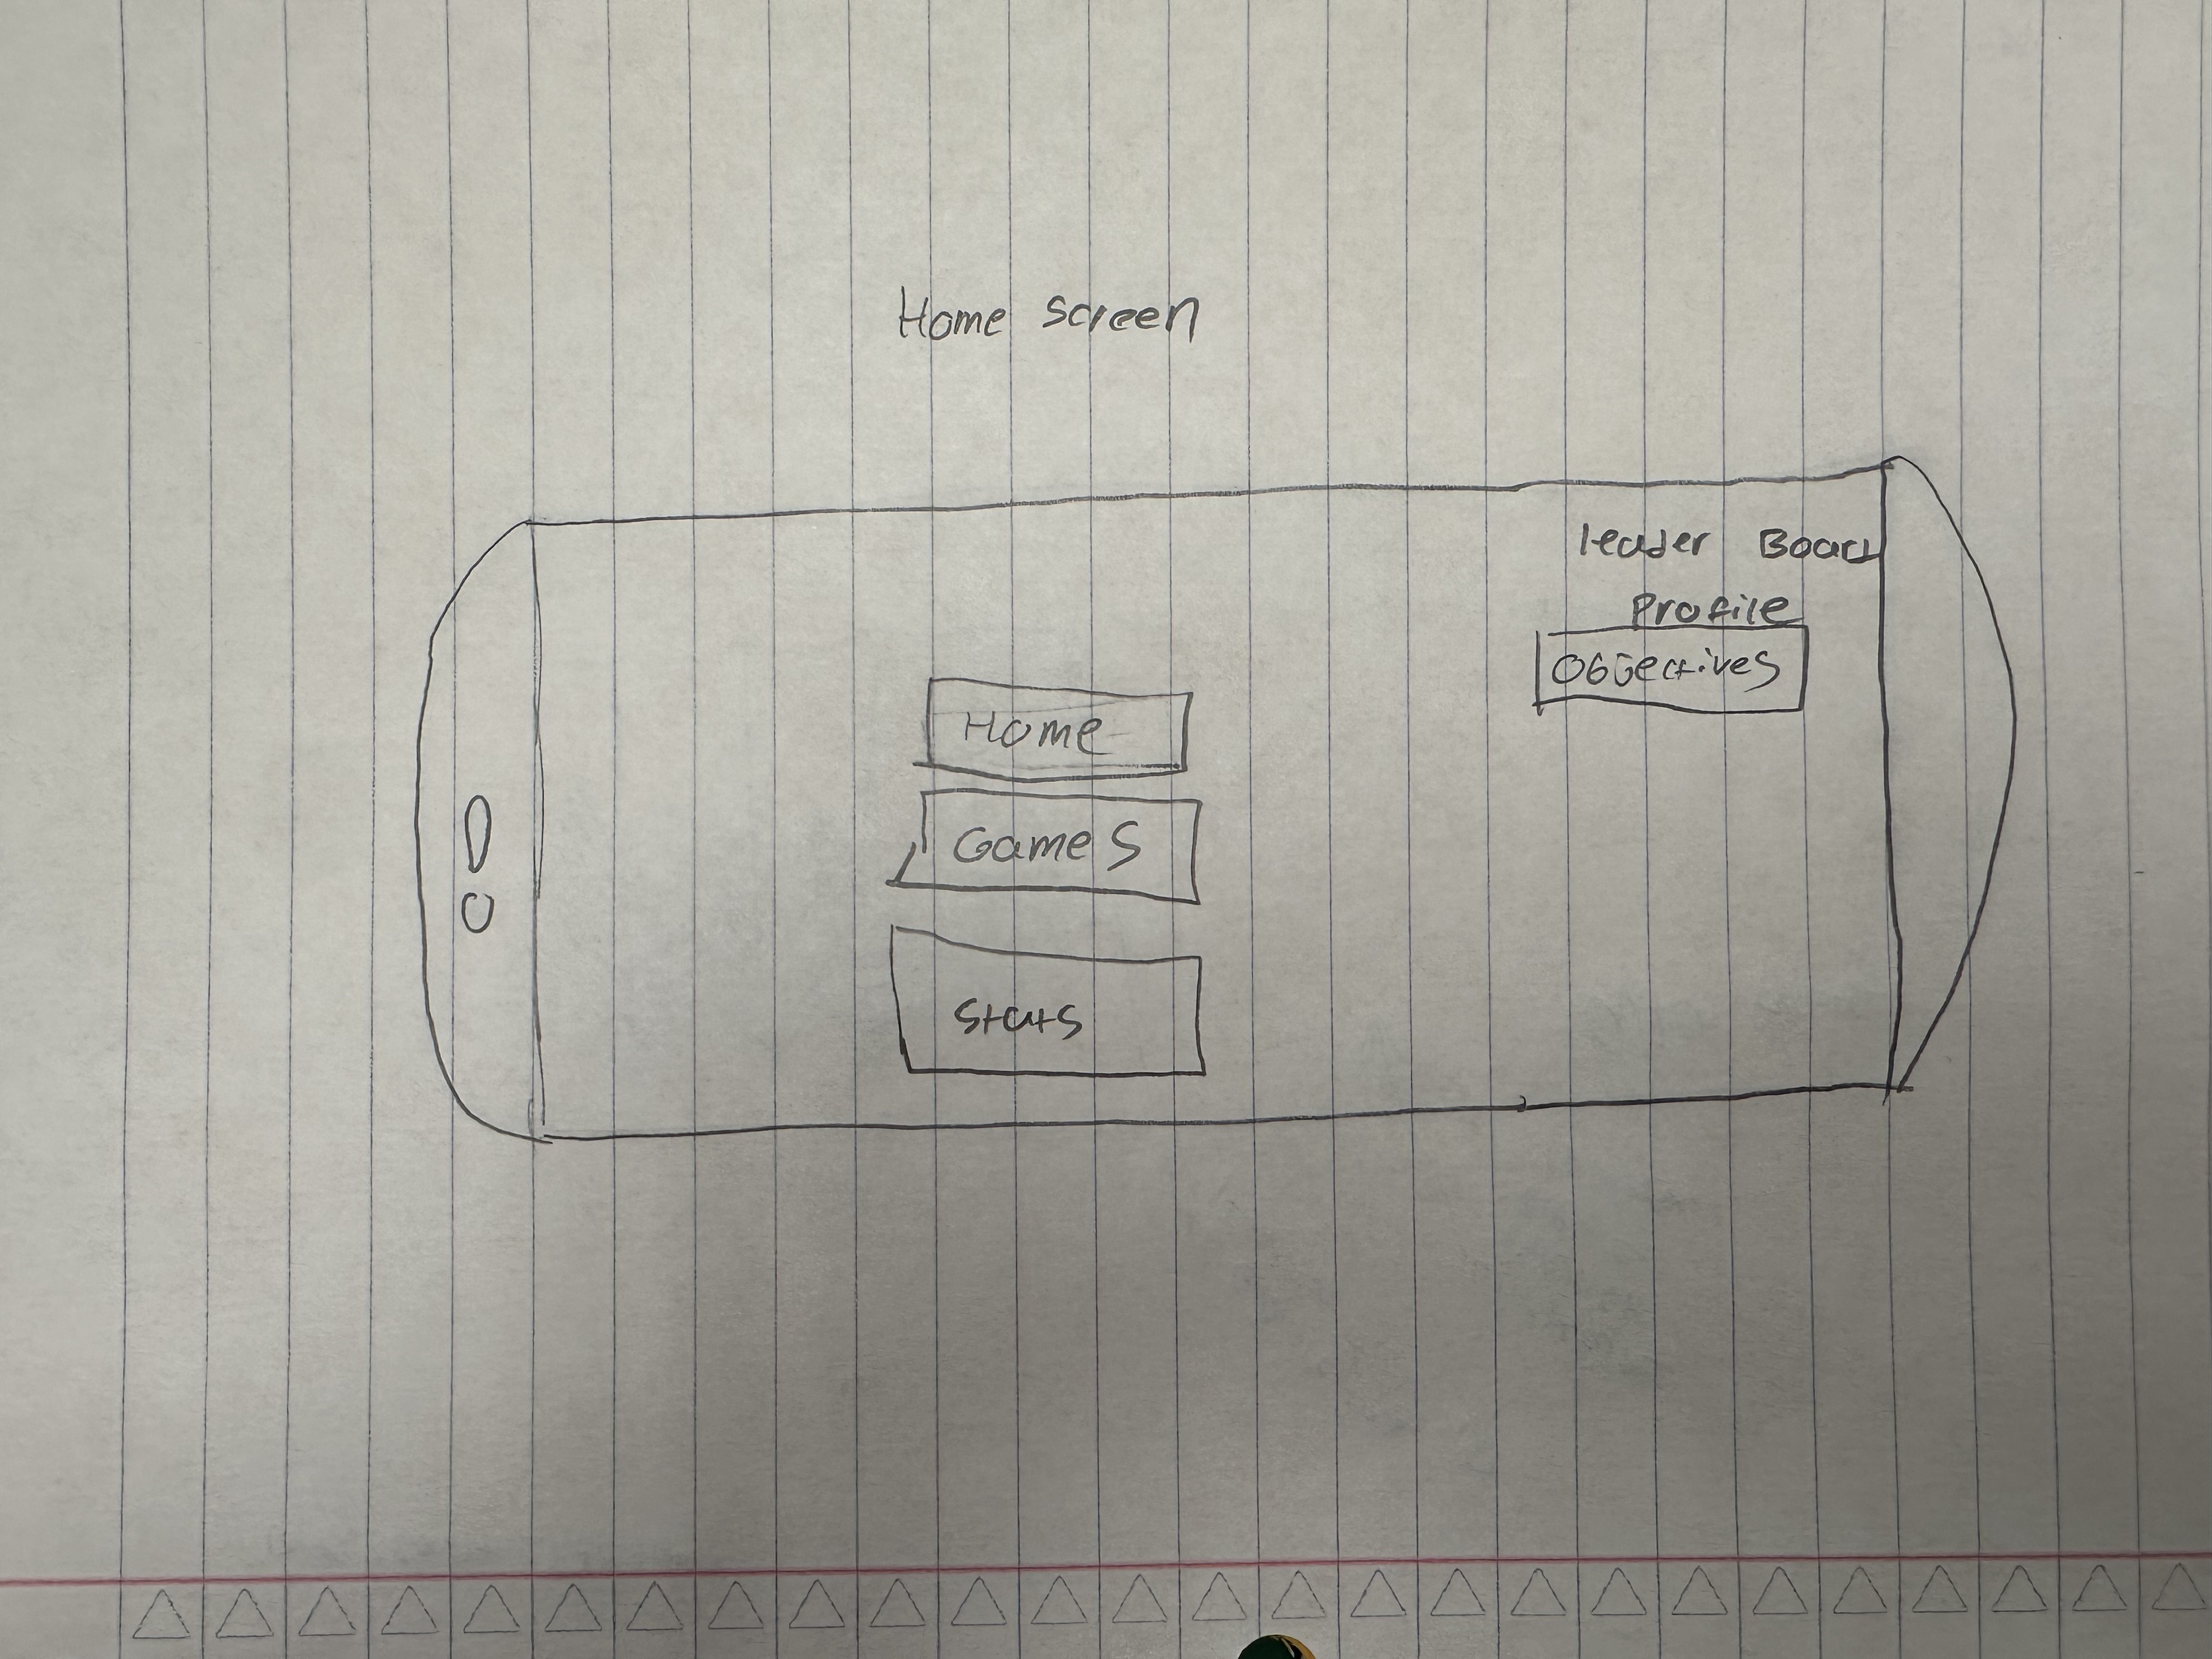 Home screen
leader Board
Profile
Objectives
Home
Games
Stats